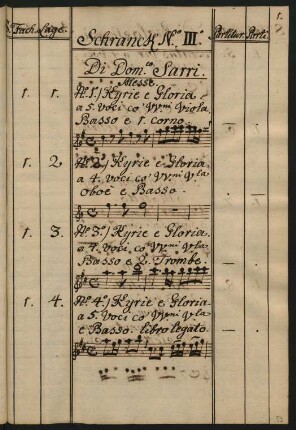 1.
Fach. Lage. Partitur. Parti.
Schranck No. III.
Di Dom.co Sarri.
Messe
1. 1. No. 1.) Kyrie e Gloria
a 5. voci co' Vvni Viola
Basso e 1. corno.
1. 2 No. 2.) Kyrie e Gloria
a 4. voci co' Vvni Vla
Oboe e Basso.
1. 3. No. 3.) Kyrie e Gloria
a 4. voci co' Vvni Vla
Basso e 2. Trombe.
1. 4. No. 4.) Kyrie e Gloria
a 5. voci co' Vvni Vla
e Basso. libro legato.